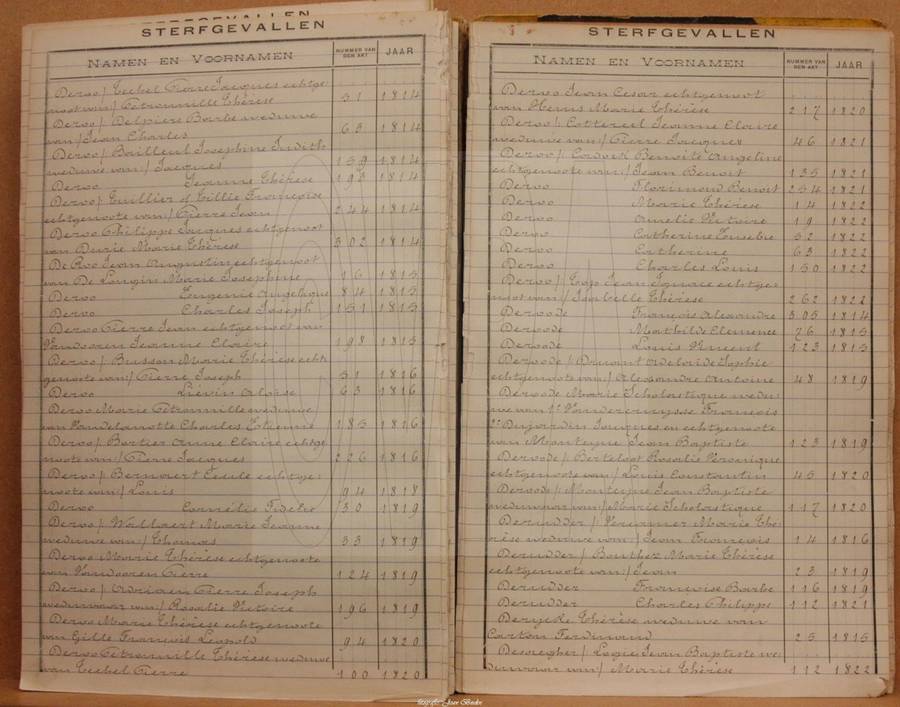 STERFGEVALLEN
NAMEN EN VOORNAMEN NUMMER VAN DEN AKT JAAR
Deroo / Techel Pierre Jacques echtge
noot van / Petronnille Thérèse 31 1814
Deroo / Delpiere Barbe weduwe
van / Jean Charles 63 1814
Deroo / Bailleul Josephine Judith
weduwe van / Jacques 159 1814
Deroo Jeanne Thérèse 193 1814
Deroo / Cuillier of Cillie Françoise
echtgenoote van / Pierre Jean 244 1814
Deroo Philippe Jacques echtgenoot
van Durie Marie Thérèse 302 1814
De Roo Jean Augustin echtgenoot
van De Langin Marie Josephine 16 1815
Deroo Eugenie Angelique 84 1815
Deroo Charles Joseph 151 1815
Deroo Pierre Jean echtgenoot van
Vandooren Jeanne Claire 198 1815
Deroo / Busson Marie Thérèse echt
genoote van / Pierre Joseph 31 1816
Deroo Liévin Aloise 63 1816
Deroo Marie Petronnille weduwe
van Vandelanotte Charles Etienne 185 1816
Deroo / Bortier Anne Claire echtge
noote van / Pierre Jacques 226 1816
Deroo / Bernaert Cecile echtge
noote van / Louis 94 1818
Deroo Cornélie Fidelie 30 1819
Deroo / Wallaert Marie Jeanne
weduwe van / Thomas 33 1819
Deroo Marie Thérèse echtgenoote
van Vandooren Pierre 124 1819
Deroo / Adriaen Pierre Joseph
weduwaar van / Rosalie Victoire 196 1819
Deroo Marie Thérèse echtgenoote
van Gille François Leopold 94 1820
Deroo Petronnille Thérèse weduwe
van Techel Pierre 100 1820
STERFGEVALLEN
NAMEN EN VOORNAMEN NUMMER VAN DEN AKT JAAR
Deroo Jean Cesar echtgenoot
van Henus Marie Thérèse 217 1820
Deroo / Cottereul Jeanne Claire
weduwe van / Pierre Jacques 46 1821
Deroo / Benoite Angeline
echtgenoote van / Jean Benoit 135 1821
Deroo Florimond Benoit 254 1821
Deroo Marie Thérèse 14 1822
Deroo Amelie Victoire 19 1822
Deroo Catherine Eusebie 52 1822
Deroo Catherine 63 1822
Deroo Charles Louis 150 1822
Deroo / Jean Ignace echtge
noot van / Isabelle Thérèse 262 1822
Deroode François Alexandre 305 1814
Deroode Mathilde Clemence 76 1815
Deroode Louis Vincent 123 1815
Deroode / Dumont Adelaide Sophie
echtgenoote van / Alexandre Antoine 48 1819
Deroode Marie Scholastique wedu
we van 1° Vandercruysse François
2° Dujardin Jacques en echtgenoote
van Monteyne Jean Baptiste 123 1819
Deroode / Berteloot Rosalie Véronique
echtgenoote van / Louis Constantin 45 1820
Deroode / Monteyne Jean Baptiste
weduwaar van / Marie Scholastique 117 1820
Derudder / Marie Thé
rèse weduwe van / Jean François 14 1816
Derudder / Bouthez Marie Thérèse
echtgenoote van / Jean 23 1819
Derudder Françoise Barbe 116 1819
Derudder Charles Philippe 112 1821
Derycke Thérèse weduwe van
Carton Ferdinand 25 1815
Desaegher / Lagie Jean Baptiste we
duwaar van / Marie Thérèse 112 1822